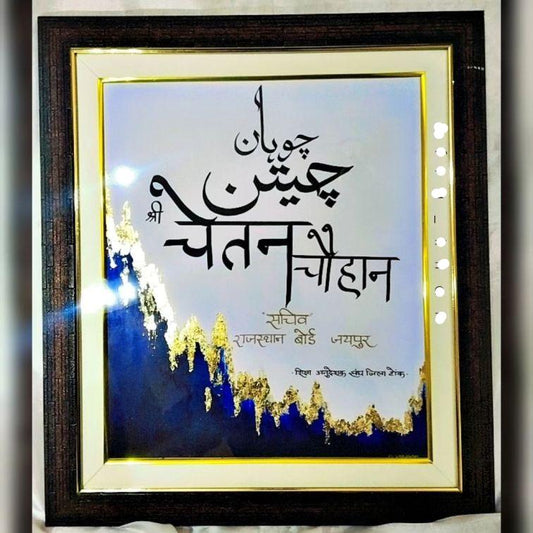 چوہان
چیتن
श्री चेतन चौहान
"सचिव"
राजस्थान बोर्ड जयपुर
शिक्षा अनुदेशक संघ जिला टोंक